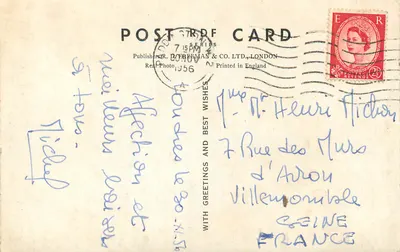 POST RPF CARD
SERIES
& CO. LTD., LONDON
Real Photo
Printed in England
7 PM
30 NOV
1956
E R
WITH GREETINGS AND BEST WISHES
Londres le 30-XI-56
Affection et
meilleurs baisers
à tous-
Michel
Mme Mr Henri Michon
7 Rue des Murs
d'Avron
Villemomble
SEINE
FRANCE